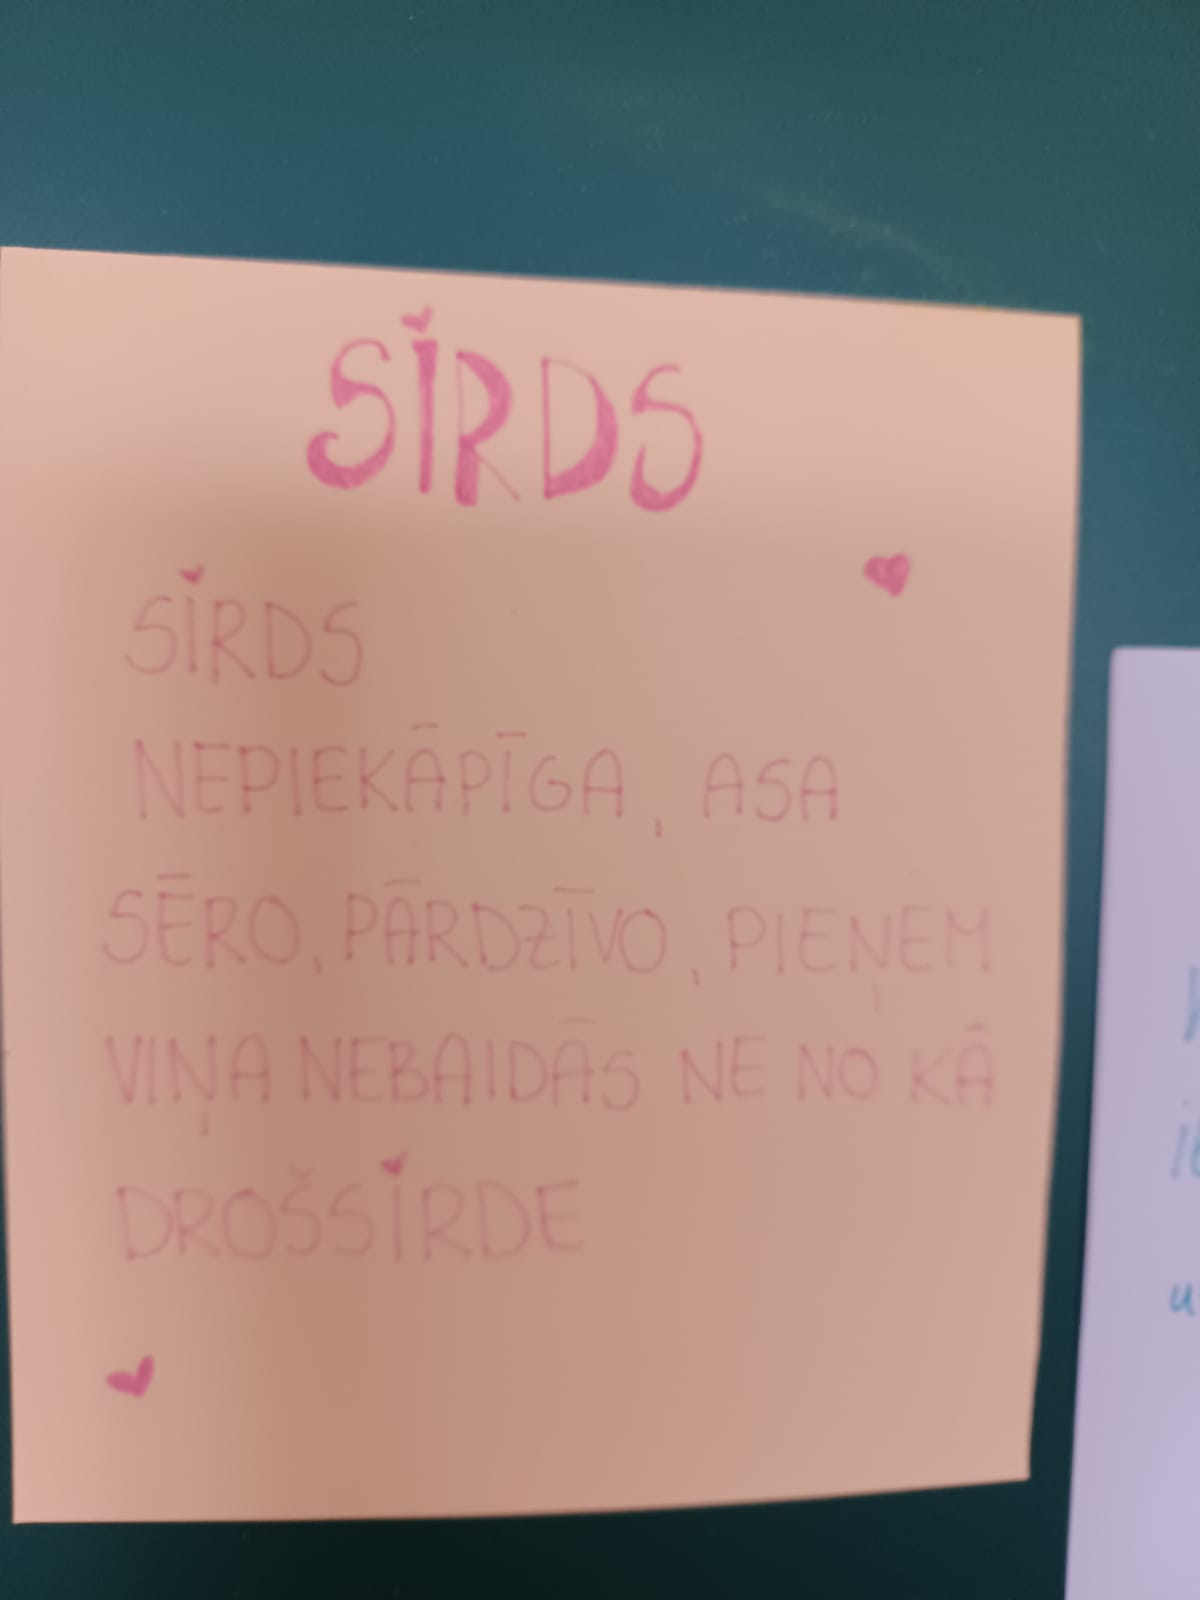 SIRDS
SIRDS
NEPIEKĀPĪGA, ASA
SĒRO, PĀRDZĪVO, PIEŅEM
VIŅA NEBAIDĀS NE NO KĀ
DROŠSIRDE